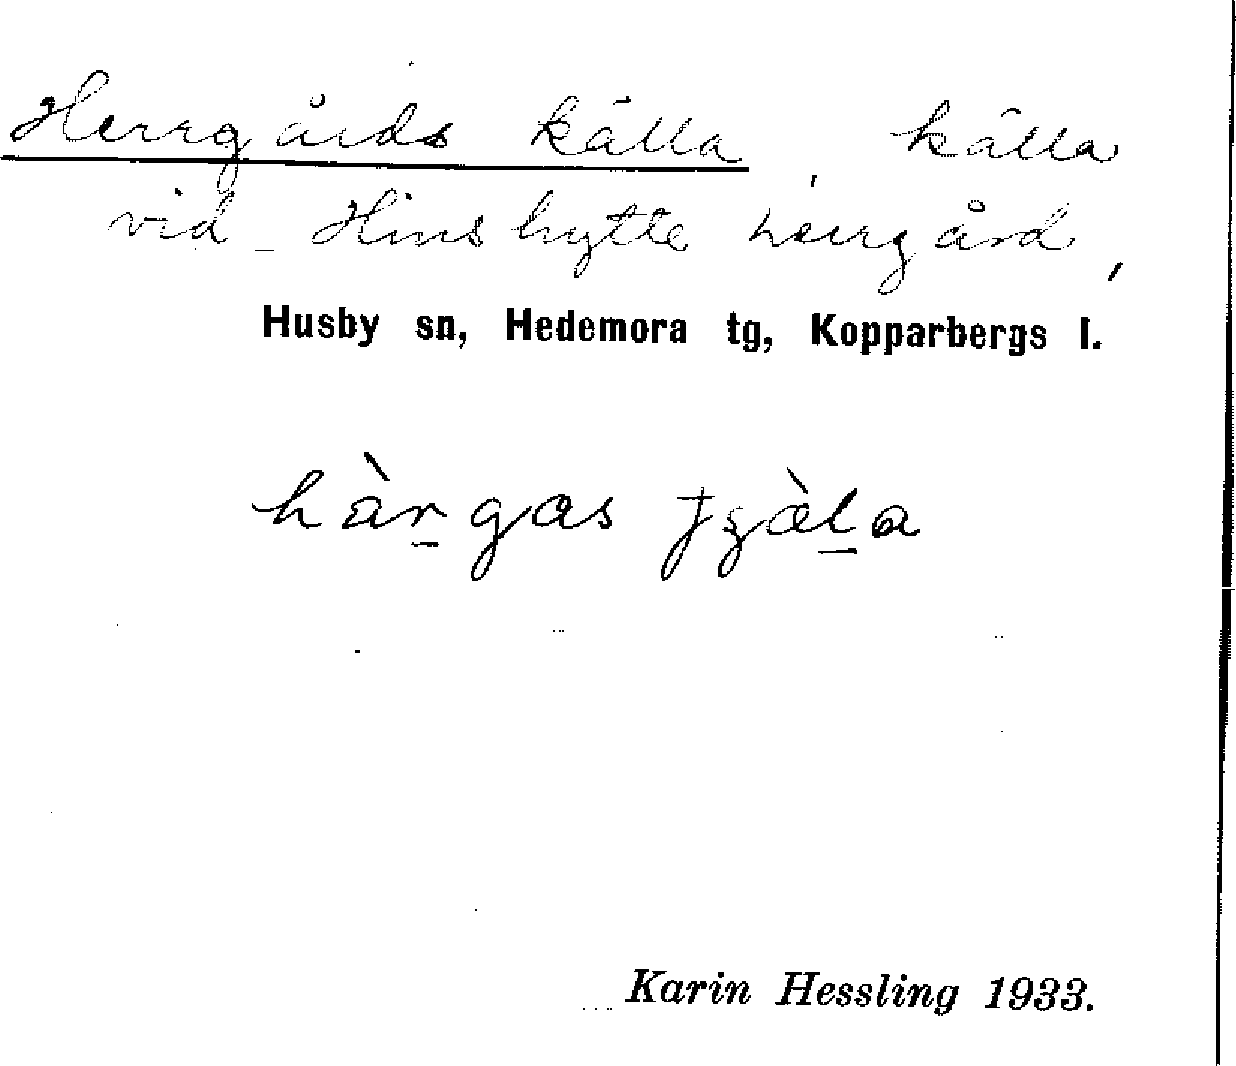 Herrgårds källa, källa
vid Hinshytte herrgård,
Husby sn, Hedemora tg, Kopparbergs l.
hàr̲gas ɟʒàl̲a
Karin Hessling 1933.